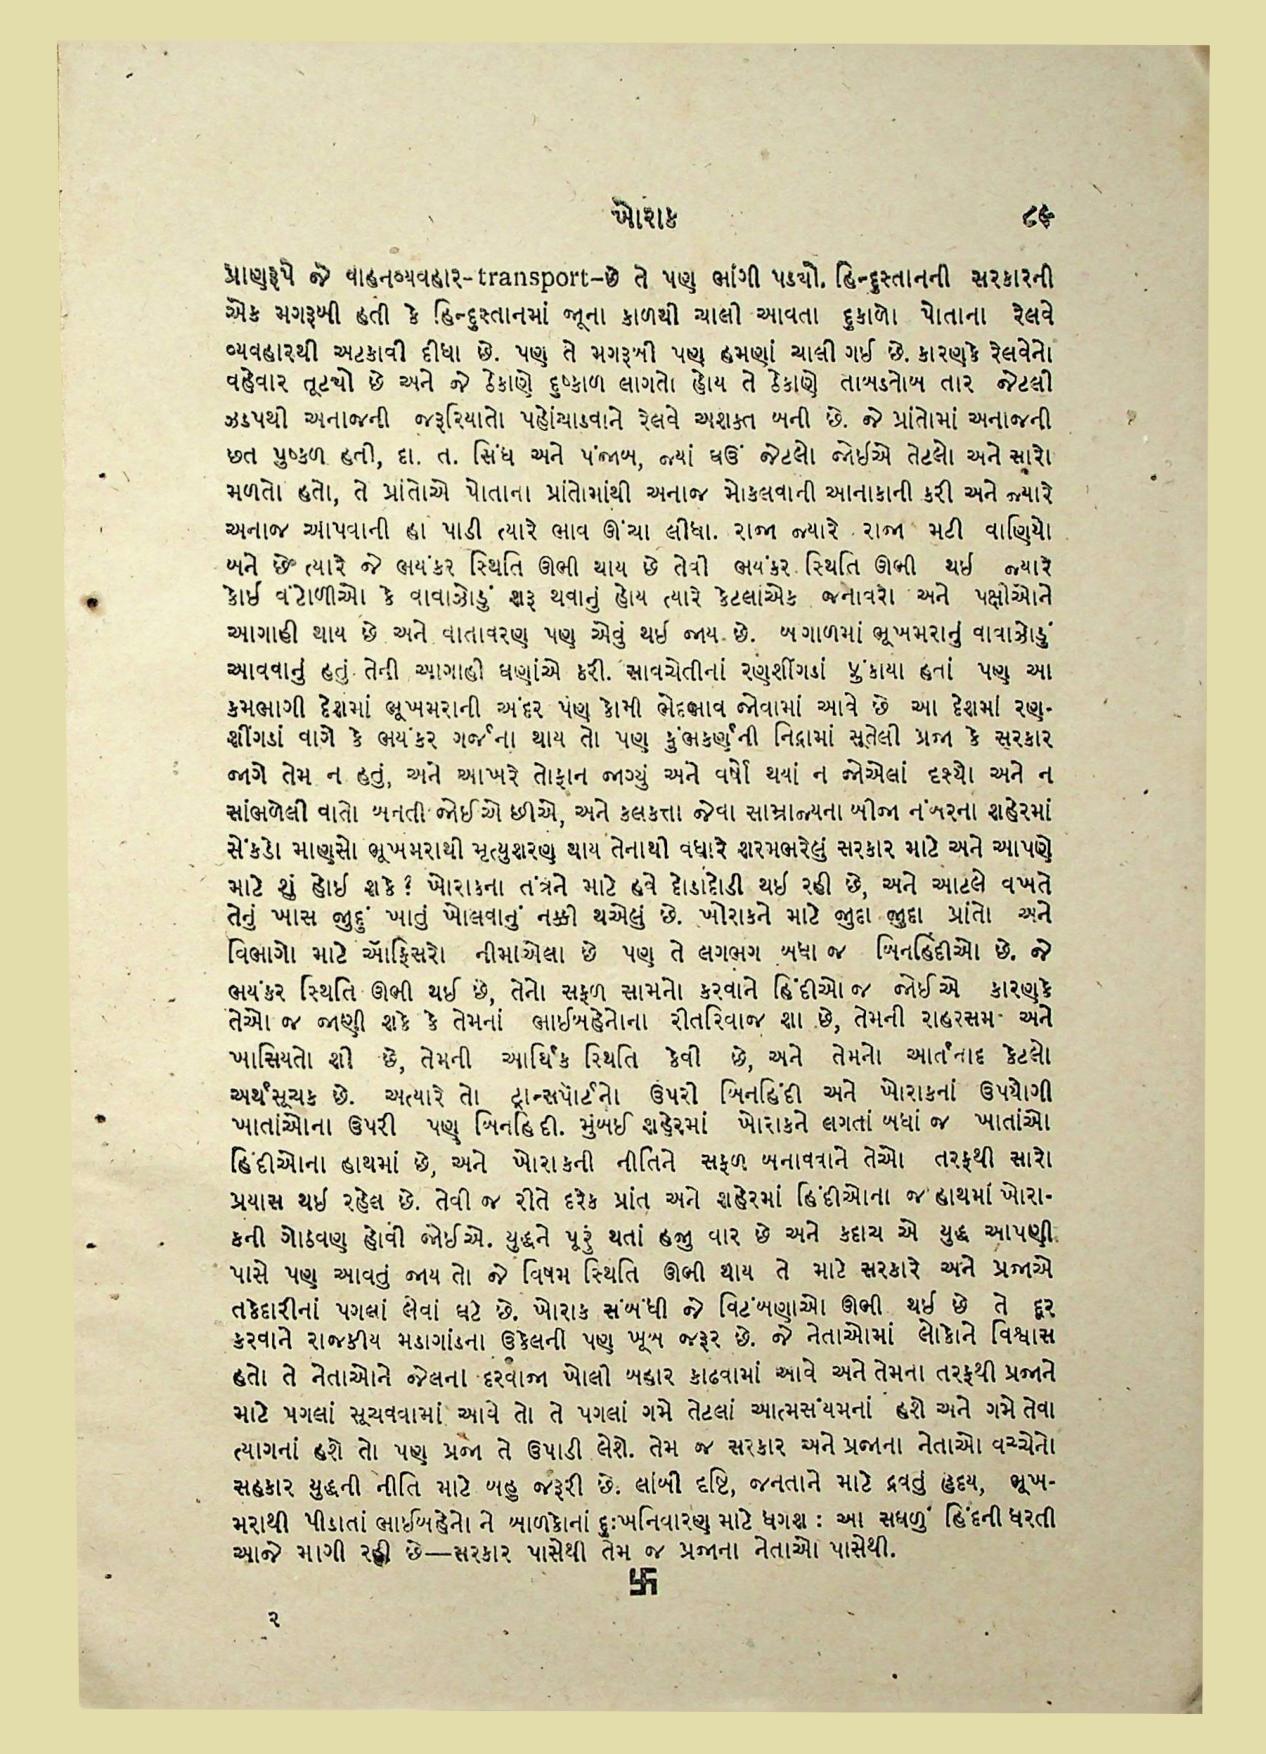 ખોરાક ૮૯
પ્રાણરૂપે જે વાહનવ્યવહાર-transport-છે તે પણ ભાંગી પડ્યો. હિન્દુસ્તાનની સરકારની
એક મગરૂબી હતી કે હિન્દુસ્તાનમાં જૂના કાળથી ચાલી આવતા દુકાળો પોતાના રેલવે
વ્યવહારથી અટકાવી દીધા છે. પણ તે મગરૂબી પણ હમણાં ચાલી ગઈ છે. કારણકે રેલવેનો
વહેવાર તૂટ્યો છે અને જે ઠેકાણે દુષ્કાળ લાગતો હોય તે ઠેકાણે તાબડતોબ તાર જેટલી
ઝડપથી અનાજની જરૂરિયાતો પહોંચાડવાને રેલવે અશક્ત બની છે. જે પ્રાંતોમાં અનાજની
છત પુષ્કળ હતી, દા. ત. સિંધ અને પંજાબ, જ્યાં ઘઉં જેટલો જોઈએ તેટલો અને સારો
મળતો હતો, તે પ્રાંતોએ પોતાના પ્રાંતોમાંથી અનાજ મોકલવાની આનાકાની કરી અને જ્યારે
અનાજ આપવાની હા પાડી ત્યારે ભાવ ઊંચા લીધા. રાજા જ્યારે રાજા મટી વાણિયો
બને છે ત્યારે જે ભયંકર સ્થિતિ ઊભી થાય છે તેવી ભયંકર સ્થિતિ ઊભી થઈ જ્યારે
કોઈ વંટોળીઓ કે વાવાઝોડું શરૂ થવાનું હોય ત્યારે કેટલાંએક જનાવરો અને પક્ષીઓને
આગાહી થાય છે અને વાતાવરણ પણ એવું થઈ જાય છે. બંગાળમાં ભૂખમરાનું વાવાઝોડું
આવવાનું હતું તેની આગાહી ઘણાંએ કરી. સાવચેતીનાં રણશીંગડાં ફુંકાયા હતાં પણ આ
કમભાગી દેશમાં ભૂખમરાની અંદર પણ કોમી ભેદભાવ જોવામાં આવે છે આ દેશમાં રણ-
શીંગડાં વાગે કે ભયંકર ગર્જના થાય તો પણ કુંભકર્ણની નિદ્રામાં સૂતેલી પ્રજા કે સરકાર
જાગે તેમ ન હતું, અને આખરે તોફાન જાગ્યું અને વર્ષો થયાં ન જોએલાં દશ્યો અને ન
સાંભળેલી વાતો બનતી જોઈએ છીએ, અને કલકત્તા જેવા સામ્રાજ્યના બીજા નંબરના શહેરમાં
સેંકડો માણસો ભૂખમરાથી મૃત્યુશરણ થાય તેનાથી વધારે શરમભરેલું સરકાર માટે અને આપણે
માટે શું હોઈ શકે? ખોરાકના તંત્રને માટે હવે દોડાદોડી થઈ રહી છે, અને આટલે વખતે
તેનું ખાસ જુદું ખાતું ખોલવાનું નક્કી થએલું છે. ખોરાકને માટે જુદા જુદા પ્રાંતો અને
વિભાગો માટે ઑફિસરો નીમાએલા છે પણ તે લગભગ બધા જ બિનહિંદીઓ છે. જે
ભયંકર સ્થિતિ ઊભી થઈ છે, તેનો સફળ સામનો કરવાને હિંદીઓ જ જોઈએ કારણકે
તેઓ જ જાણી શકે કે તેમનાં ભાઈબહેનોના રીતરિવાજ શા છે, તેમની રાહરસમ અને
ખાસિયતો શી છે, તેમની આર્થિક સ્થિતિ કેવી છે, અને તેમનો આર્તનાદ કેટલો
અર્થસૂચક છે. અત્યારે તો ટ્રાન્સપોર્ટનો ઉપરી બિનહિંદી અને ખોરાકનાં ઉપયોગી
ખાતાંઓના ઉપરી પણ બિનહિંદી. મુંબઈ શહેરમાં ખોરાકને લગતાં બધાં જ ખાતાંઓ
હિંદીઓના હાથમાં છે, અને ખોરાકની નીતિને સફળ બનાવવાને તેઓ તરફથી સારો
પ્રયાસ થઈ રહેલ છે. તેવી જ રીતે દરેક પ્રાંત અને શહેરમાં હિંદીઓના જ હાથમાં ખોરા-
કની ગોઠવણ હોવી જોઈએ. યુદ્ધને પૂરું થતાં હજુ વાર છે અને કદાચ એ યુદ્ધ આપણી
પાસે પણ આવતું જાય તો જે વિષમ સ્થિતિ ઊભી થાય તે માટે સરકારે અને પ્રજાએ
તકેદારીનાં પગલાં લેવાં ઘટે છે. ખોરાક સંબંધી જે વિટંબણાઓ ઊભી થઈ છે તે દૂર
કરવાને રાજકીય મડાગાંઠના ઉકેલની પણ ખૂબ જરૂર છે. જે નેતાઓમાં લોકોને વિશ્વાસ
હતો તે નેતાઓને જેલના દરવાજા ખોલી બહાર કાઢવામાં આવે અને તેમના તરફથી પ્રજાને
માટે પગલાં સૂચવવામાં આવે તો તે પગલાં ગમે તેટલાં આત્મસંયમનાં હશે અને ગમે તેવા
ત્યાગનાં હશે તો પણ પ્રજા તે ઉપાડી લેશે. તેમ જ સરકાર અને પ્રજાના નેતાઓ વચ્ચેનો
સહકાર યુદ્ધની નીતિ માટે બહુ જરૂરી છે. લાંબી દષ્ટિ, જનતાને માટે દ્રવતું હૃદય, ભૂખ-
મરાથી પીડાતાં ભાઈબહેનો ને બાળકોનાં દુઃખનિવારણ માટે ધગશ : આ સઘળું હિંદની ધરતી
આજે માગી રહી છે—સરકાર પાસેથી તેમ જ પ્રજાના નેતાઓ પાસેથી.
卐
૨